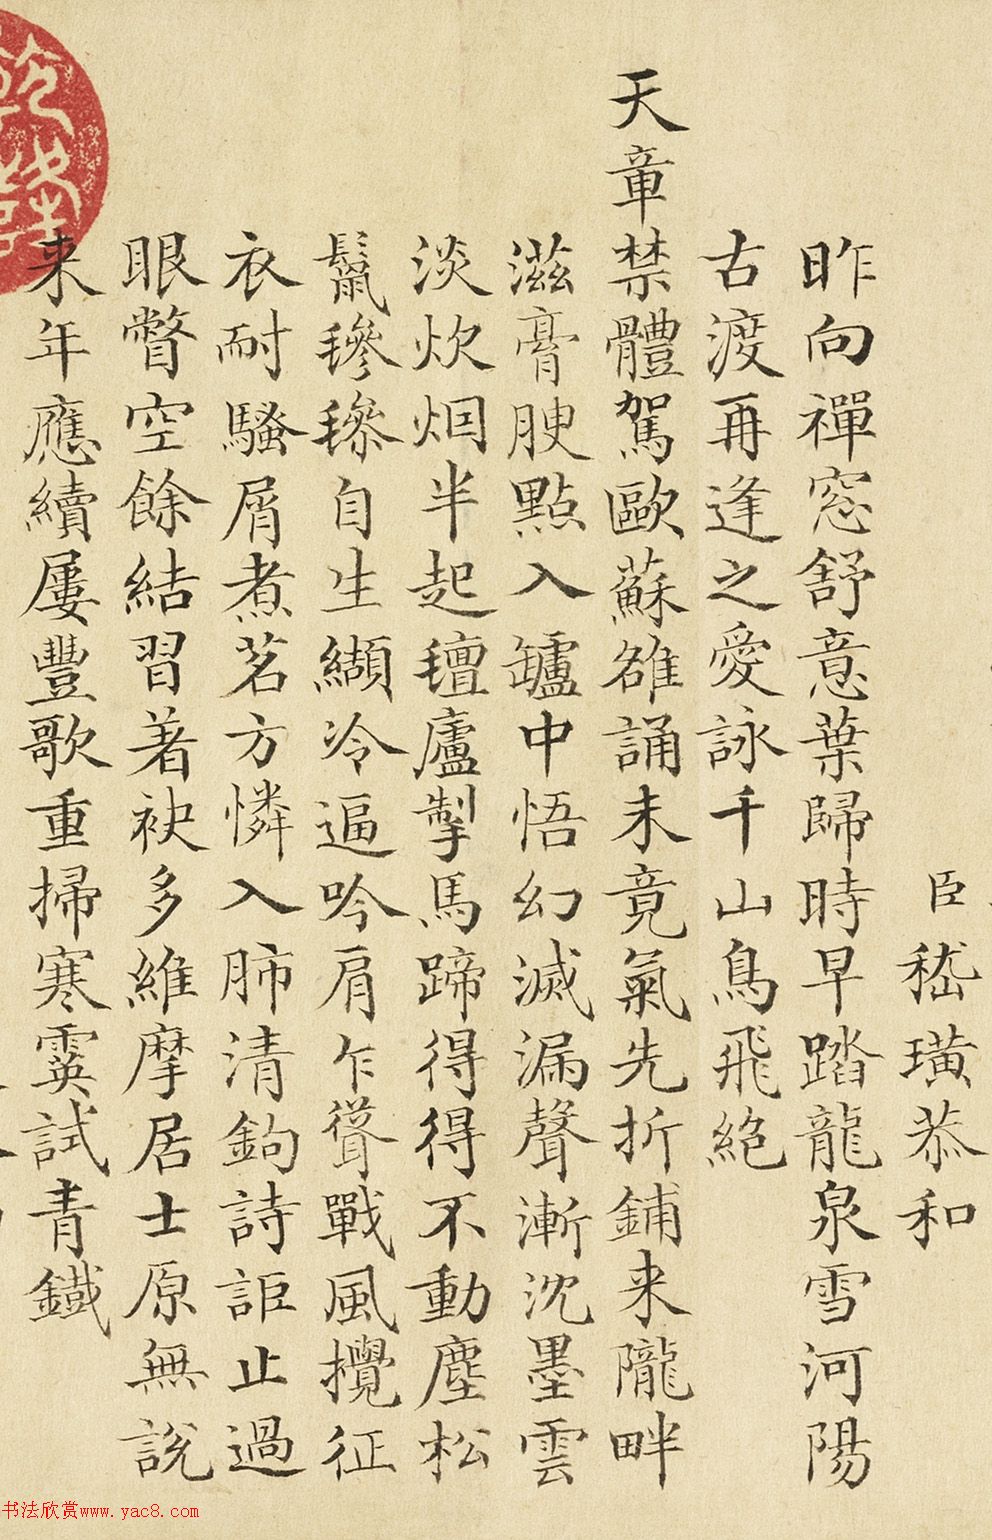 臣嵇璜恭和
昨向禪窓舒意葉歸時早踏龍泉雪河陽
古渡再逢之愛詠千山鳥飛絕
天章禁體駕歐蘇雒誦未竟氣先折鋪来隴畔
滋膏腴點入罏中悟幻滅漏聲漸沈墨雲
淡炊烟半起氊廬掣馬蹄得得不動塵松
鬣毿毿自生纈冷逼吟肩乍聳戰風攪征
衣耐騷屑煮茗方憐入肺清鉤詩詎止過
眼瞥空餘結習著袂多維摩居士原無說
来年應續屢豐歌重掃寒霙試青鐵
书法欣赏www.yac8.com